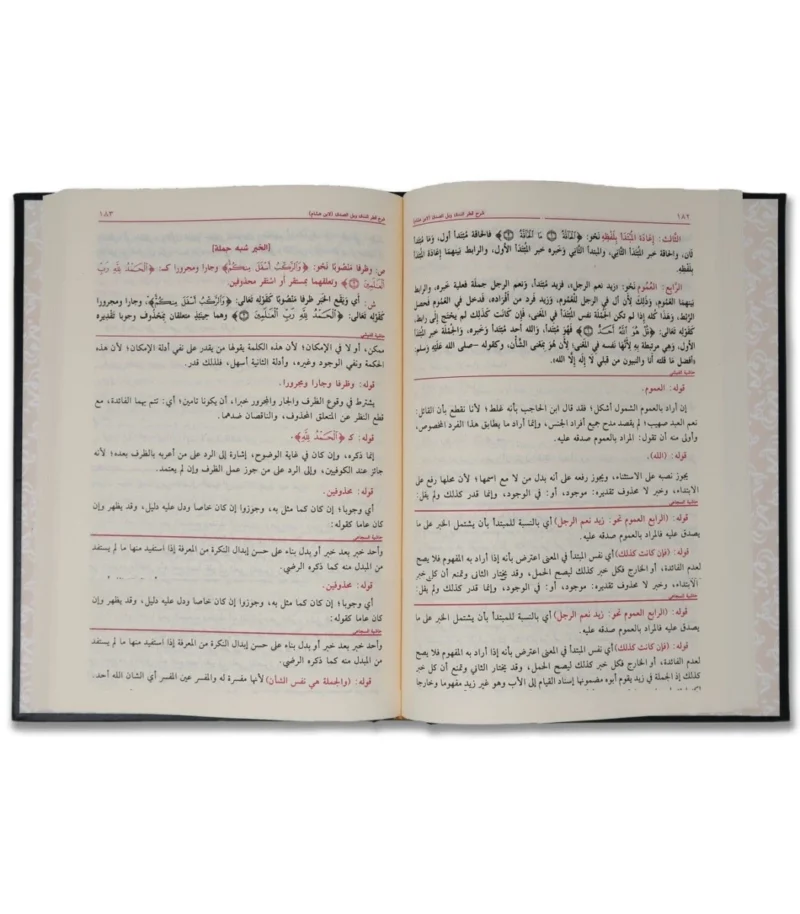 ١٨٢ شرح قطر الندى وبل الصدى (لابن هشام)
الثَّالث: إِعَادَةُ المُبْتَدَأِ بِلَفْظِهِ نَحْوَ: ﴿الْحَاقَّةُ ۝ مَا الْحَاقَّةُ ۝﴾ فالحاقة مُبْتَدَأ أول، وَمَا مُبْتَدأ
ثَان، والحاقة خبر المُبْتَدَأ الثَّانِي، والمبتدأ الثَّانِي وَخَبره خبر المُبْتَدَأ الأول، والرابط بَينهمَا إِعَادَة المُبْتَدَأ
بِلَفْظِهِ.
الرَّابِع: العُمُوم نَحْو: «زيد نعم الرجل»، فزيد مُبْتَدأ، وَنعم الرجل جملَة فعلية خَبره، والرابط
بَينهمَا العُمُوم، وَذَلِكَ لِأَن أل فِي الرجل للْعُمُوم، وَزيد فَرد من أَفْرَاده، فَدخل فِي العُمُوم فَحصل
الرَّبْط، وَهَذَا كُله إِذا لم تكن الجُمْلَة نفس المُبْتَدَأ فِي الْمَعْنى، فَإِن كَانَت كَذَلِك لم يحْتَج إِلَى رابط،
كَقَوْلِه تَعَالَى: ﴿قُلْ هُوَ اللَّهُ أَحَدٌ ۝﴾ فَهُوَ مُبْتَدأ، وَالله أحد مُبْتَدأ وَخَبره، وَالجُمْلَة خبر المُبْتَدَأ
الأول، وَهِي مرتبطة بِهِ لِأَنَّهَا نَفسه فِي الْمَعْنى؛ لِأَن هُوَ بِمَعْنى الشَّأْن، وَكقوله -صلى الله عليه وَسلم:
«أفضل مَا قلته أَنا والنبيون من قبلي لَا إِلَه إِلَّا الله».
حاشية الفيشي
قوله: العموم.
إن أراد بالعموم الشمول أشكل؛ فقد قال ابن الحاجب بأنه غلط؛ لأنا نقطع بأن القائل:
نعم العبد صهيب؛ لم يقصد مدح جميع أفراد الجنس، وإنما أراد ما يطابق هذا الفرد المخصوص،
وأولى منه أن تقول: المراد بالعموم صدقه عليه.
قوله: (الله).
يجوز نصبه على الاستثناء، ويجوز رفعه على أنه بدل من لا مع اسمها؛ لأن محلها رفع على
الابتداء، وخبر لا محذوف تقديره: موجود، أو: في الوجود، وإنما قدر كذلك ولم يقل:
حاشية السجاعي
قوله: (الرابع العموم نحو: زيد نعم الرجل) أي بالنسبة للمبتدأ بأن يشتمل الخبر على ما
يصدق عليه فالمراد بالعموم صدقه عليه.
قوله: (فإن كانت كذلك) أي نفس المبتدأ في المعنى اعترض بأنه إذا أراد به المفهوم فلا يصح
لعدم الفائدة، أو الخارج فكل خبر كذلك ليصح الحمل، وقد يختار الثاني ونمنع أن كل خبر
الابتداء، وخبر لا محذوف تقديره: موجود، أو: في الوجود، وإنما قدر كذلك ولم يقل:
حاشية السجاعي
قوله: (الرابع العموم نحو: زيد نعم الرجل) أي بالنسبة للمبتدأ بأن يشتمل الخبر على ما
يصدق عليه فالمراد بالعموم صدقه عليه.
قوله: (فإن كانت كذلك) أي نفس المبتدأ في المعنى اعترض بأنه إذا أراد به المفهوم فلا يصح
لعدم الفائدة، أو الخارج فكل خبر كذلك ليصح الحمل، وقد يختار الثاني ونمنع أن كل خبر
كذلك إذ الجملة في زيد يقوم أبوه مضمونها إسناد القيام إلى الأب وهو غير زيد مفهوما وخارجا
شرح قطر الندى وبل الصدى (لابن هشام) ١٨٣
[الخبر شبه جملة]
ص: وظرفا مَنْصُوبًا نَحْو: ﴿وَالرَّكْبُ أَسْفَلَ مِنكُمْ﴾ وجارا ومجرورا كـ: ﴿الْحَمْدُ لِلَّهِ رَبِّ
الْعَالَمِينَ ۝﴾ وتعلقهما بمستقر أو استقر محذوفين.
ش: أَي وَيَقَع الْخَبَر ظرفا مَنْصُوبًا كَقَوْلِه تَعَالَى: ﴿وَالرَّكْبُ أَسْفَلَ مِنكُمْ﴾، وجارا ومجرورا
كَقَوْلِه تَعَالَى: ﴿الْحَمْدُ لِلَّهِ رَبِّ الْعَالَمِينَ ۝﴾ وهما حِينَئِذٍ متعلقان بِمَحْذُوف وجوبا تَقْدِيره
حاشية الفيشي
ممكن، أو لا في الإمكان؛ لأن هذه الكلمة يقولها من يقدر على نفي أدلة الإمكان؛ لأن هذه
الحكمة ونفي الوجود وغيره، وأدلة الثانية أسهل، فلذلك قدر.
قوله: وظرفا وجارا ومجرورا.
يشترط في وقوع الظرف والجار والمجرور خبرا، أن يكونا تامين؛ أي: تتم بهما الفائدة، مع
قطع النظر عن المتعلق المحذوف، والناقصان ضدهما.
قوله: كـ ﴿الْحَمْدُ لِلَّهِ﴾.
إنما ذكره، وإن كان في غاية الوضوح، إشارة إلى الرد على من أعربه بالظرف بعده؛ لأنه
جائز عند الكوفيين، وإلى الرد على من جوز عمل الظرف وإن لم يعتمد.
قوله: محذوفين.
أي وجوبا؛ إن كان كما مثل به، وجوزوا إن كان خاصا ودل عليه دليل، وقد يظهر وإن
كان عاما كقوله:
حاشية السجاعي
وأحد خبر بعد خبر أو بدل بناء على حسن إبدال النكرة من المعرفة إذا استفيد منها ما لم يستفد
من المبدل منه كما ذكره الرضي.
قوله: محذوفين.
أي وجوبا؛ إن كان كما مثل به، وجوزوا إن كان خاصا ودل عليه دليل، وقد يظهر وإن
كان عاما كقوله:
حاشية السجاعي
وأحد خبر بعد خبر أو بدل بناء على حسن إبدال النكرة من المعرفة إذا استفيد منها ما لم يستفد
من المبدل منه كما ذكره الرضي.
قوله: (والجملة هي نفس الشأن) لأنها مفسرة له والمفسر عين المفسر أي الشان الله أحد.